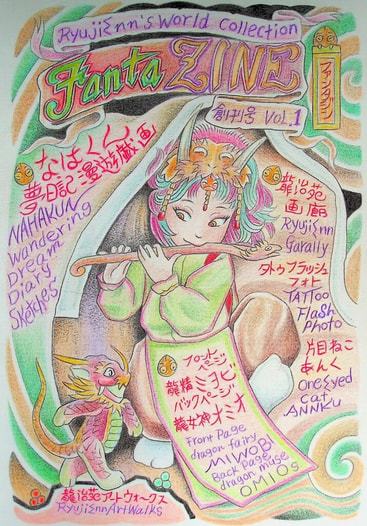 RyujiΣnn's World Collection
Fanta ZINE
ファンタジン
創刊号 Vol.1
なはくんの
夢日記漫遊戯画
NAHAKUN
Wandering
Dream
Diary
Sketches
龍治苑
画廊
RyujiΣnn
Garally
タトゥフラッシュ
フォト
TATToo
FlaSh
Photo
片目ねこ
あんく
OneΣyed
cat
ANNKU
フロントページ
龍精ミヨビ
バックページ
龍女神オミオ
Front Page
dragon fairy
MIWOBi
Back Page
dragon muse
OMIOs
龍治苑アトウォークス
RyujiΣnnArtWalks